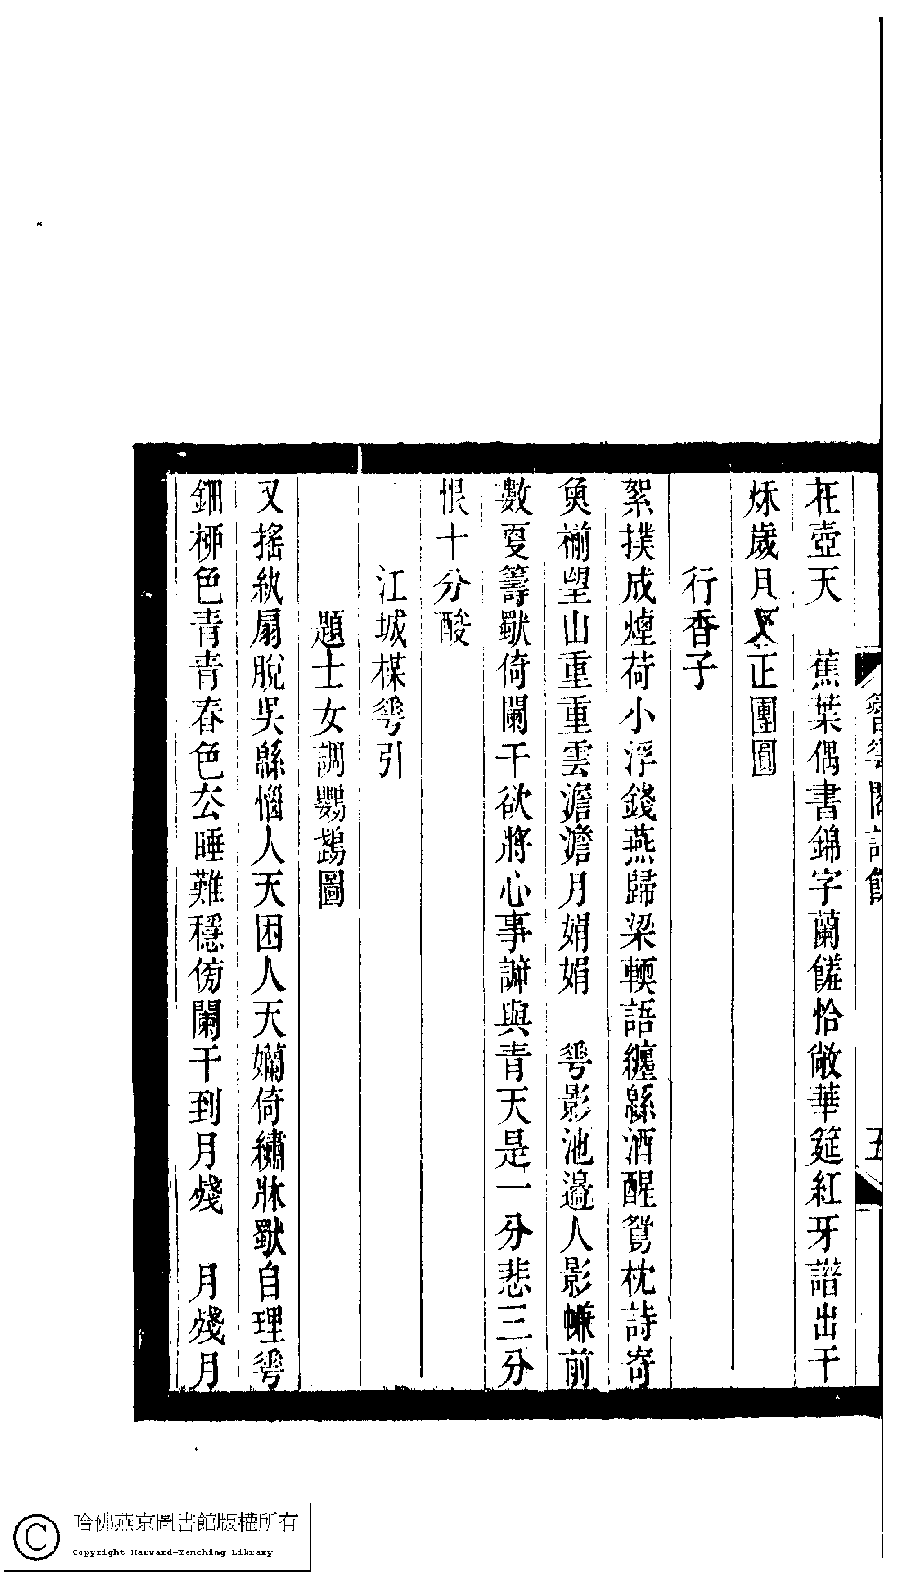 在壺天　蕉葉偶書錦字蘭饈恰敞華筵紅牙譜出千
秌歲月又正團圓
行香子
絮撲成煙荷小浮錢燕歸梁輭語纏緜酒醒鴛枕詩寄
魚椾望山重重雲澹澹月娟娟　蕚影池邊人影㡘前
數叓籌獸倚闌干欲將心事訴與青天是一分悲三分
恨十分酸
江城楳蕚引
題士女調鸚鵡圖
又搖紈扇脫吳緜惱人天困人天嬾倚繡牀獸自理蕚
鈿桺色青青春色厺睡難穩傍闌干到月殘　月殘月
閣詩餘
五
哈佛燕京圖書館版權所有
Copyright Harvard-Yenching Library